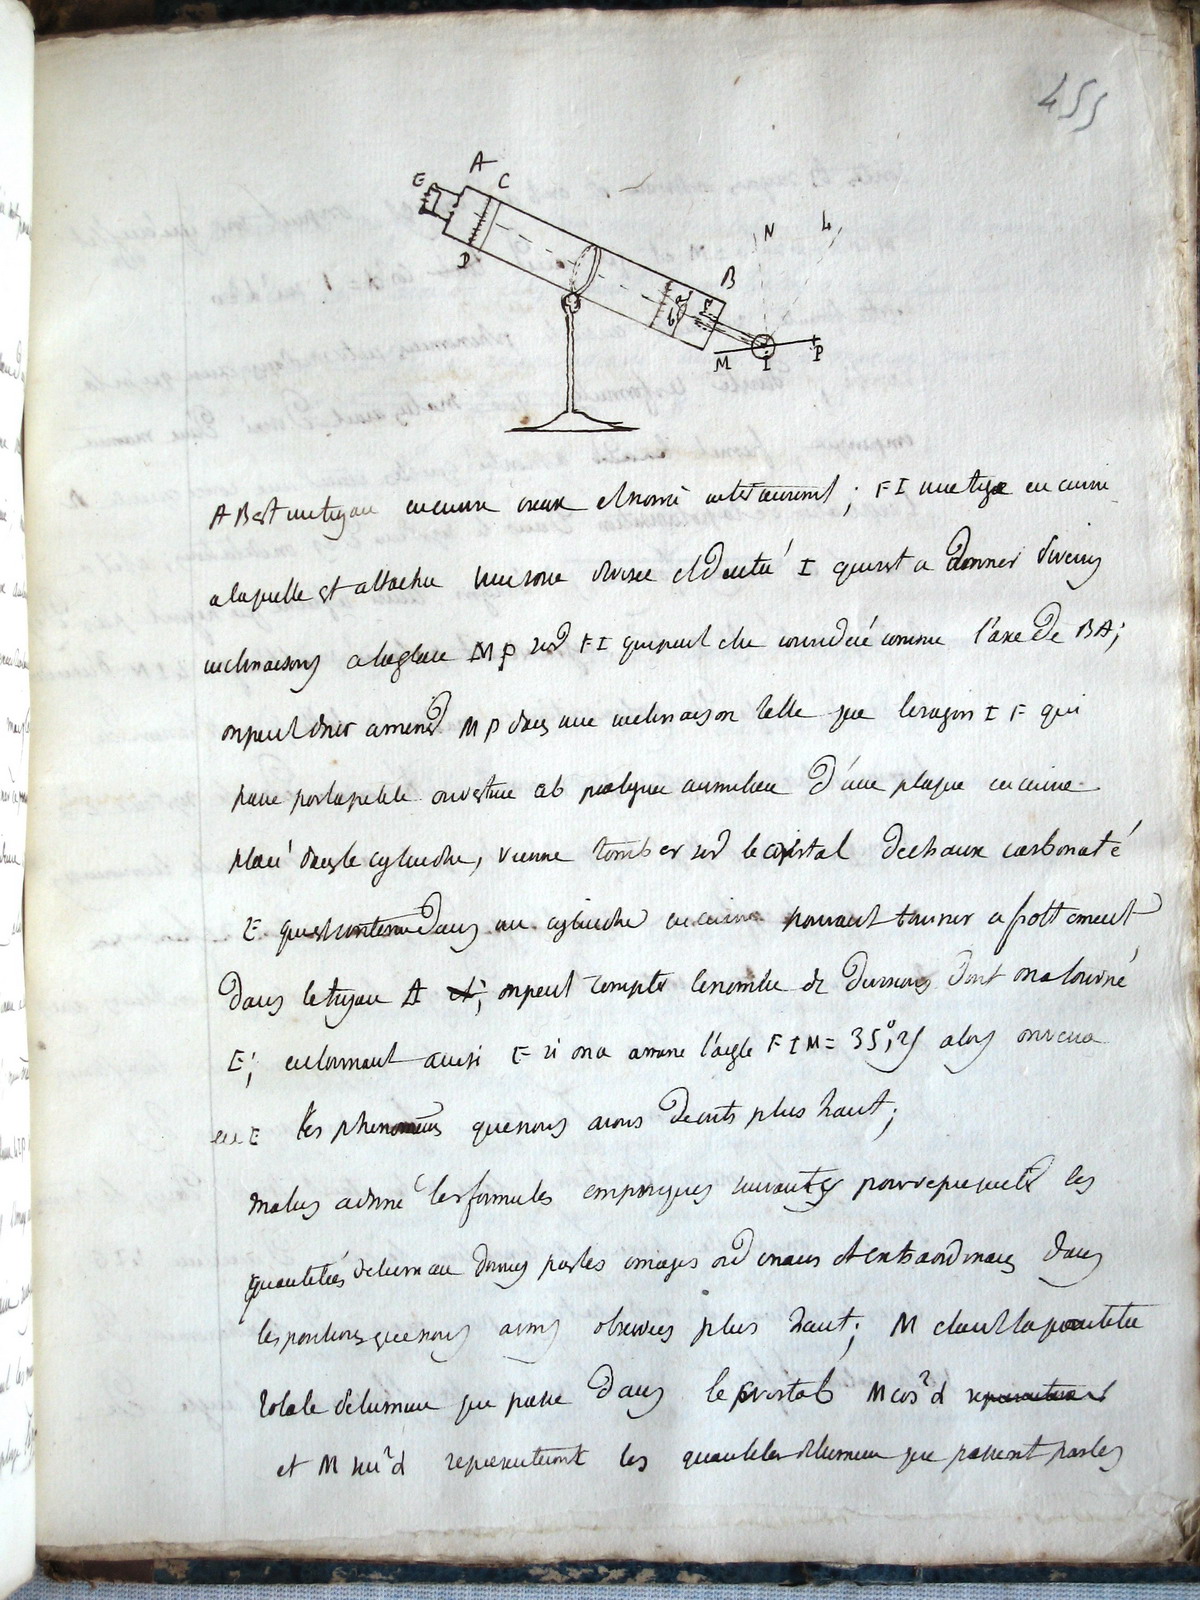 455
A
E C
N L
D
B
a
b
F
M I P
AB est un tuyau en cuivre creux et noirci intérieurement ; FI une tige en cuivre
a laquelle est attachée une roue divisée et dentée I qui sert a donner divers
inclinaisons a la glace MP sur FI qui peut etre considéré comme l'axe de BA ;
on peut donc amener MP dans une inclinaison telle que le rayon IF qui
passe par la petite ouverture ab pratiquée au milieu d'une plaque en cuivre
placé dans le cylindre, vienne tomber sur le cristal de chaux carbonaté
E qui est contenu dans un cylindre en cuivre pouvant tourner a frottement
dans le tuyau A ; on peut compter le nombre de divisions dont on a tourné
E ; en tournant ainsi E si on a amené l'angle FIM = 35°,25 alors on verra
en E les phenomenes que nous avons decrits plus haut ;
Malus a donné les formules empyriques suivantes pour representer les
quantités de lumiere donnés par les images ordinaires et extraordinaires dans
les positions que nous avons observées plus haut ; M etant la quantité
totale de lumiere que passe dans le cristal M cos²d
et M sin²d representeront les quantités de lumiere que passent par les